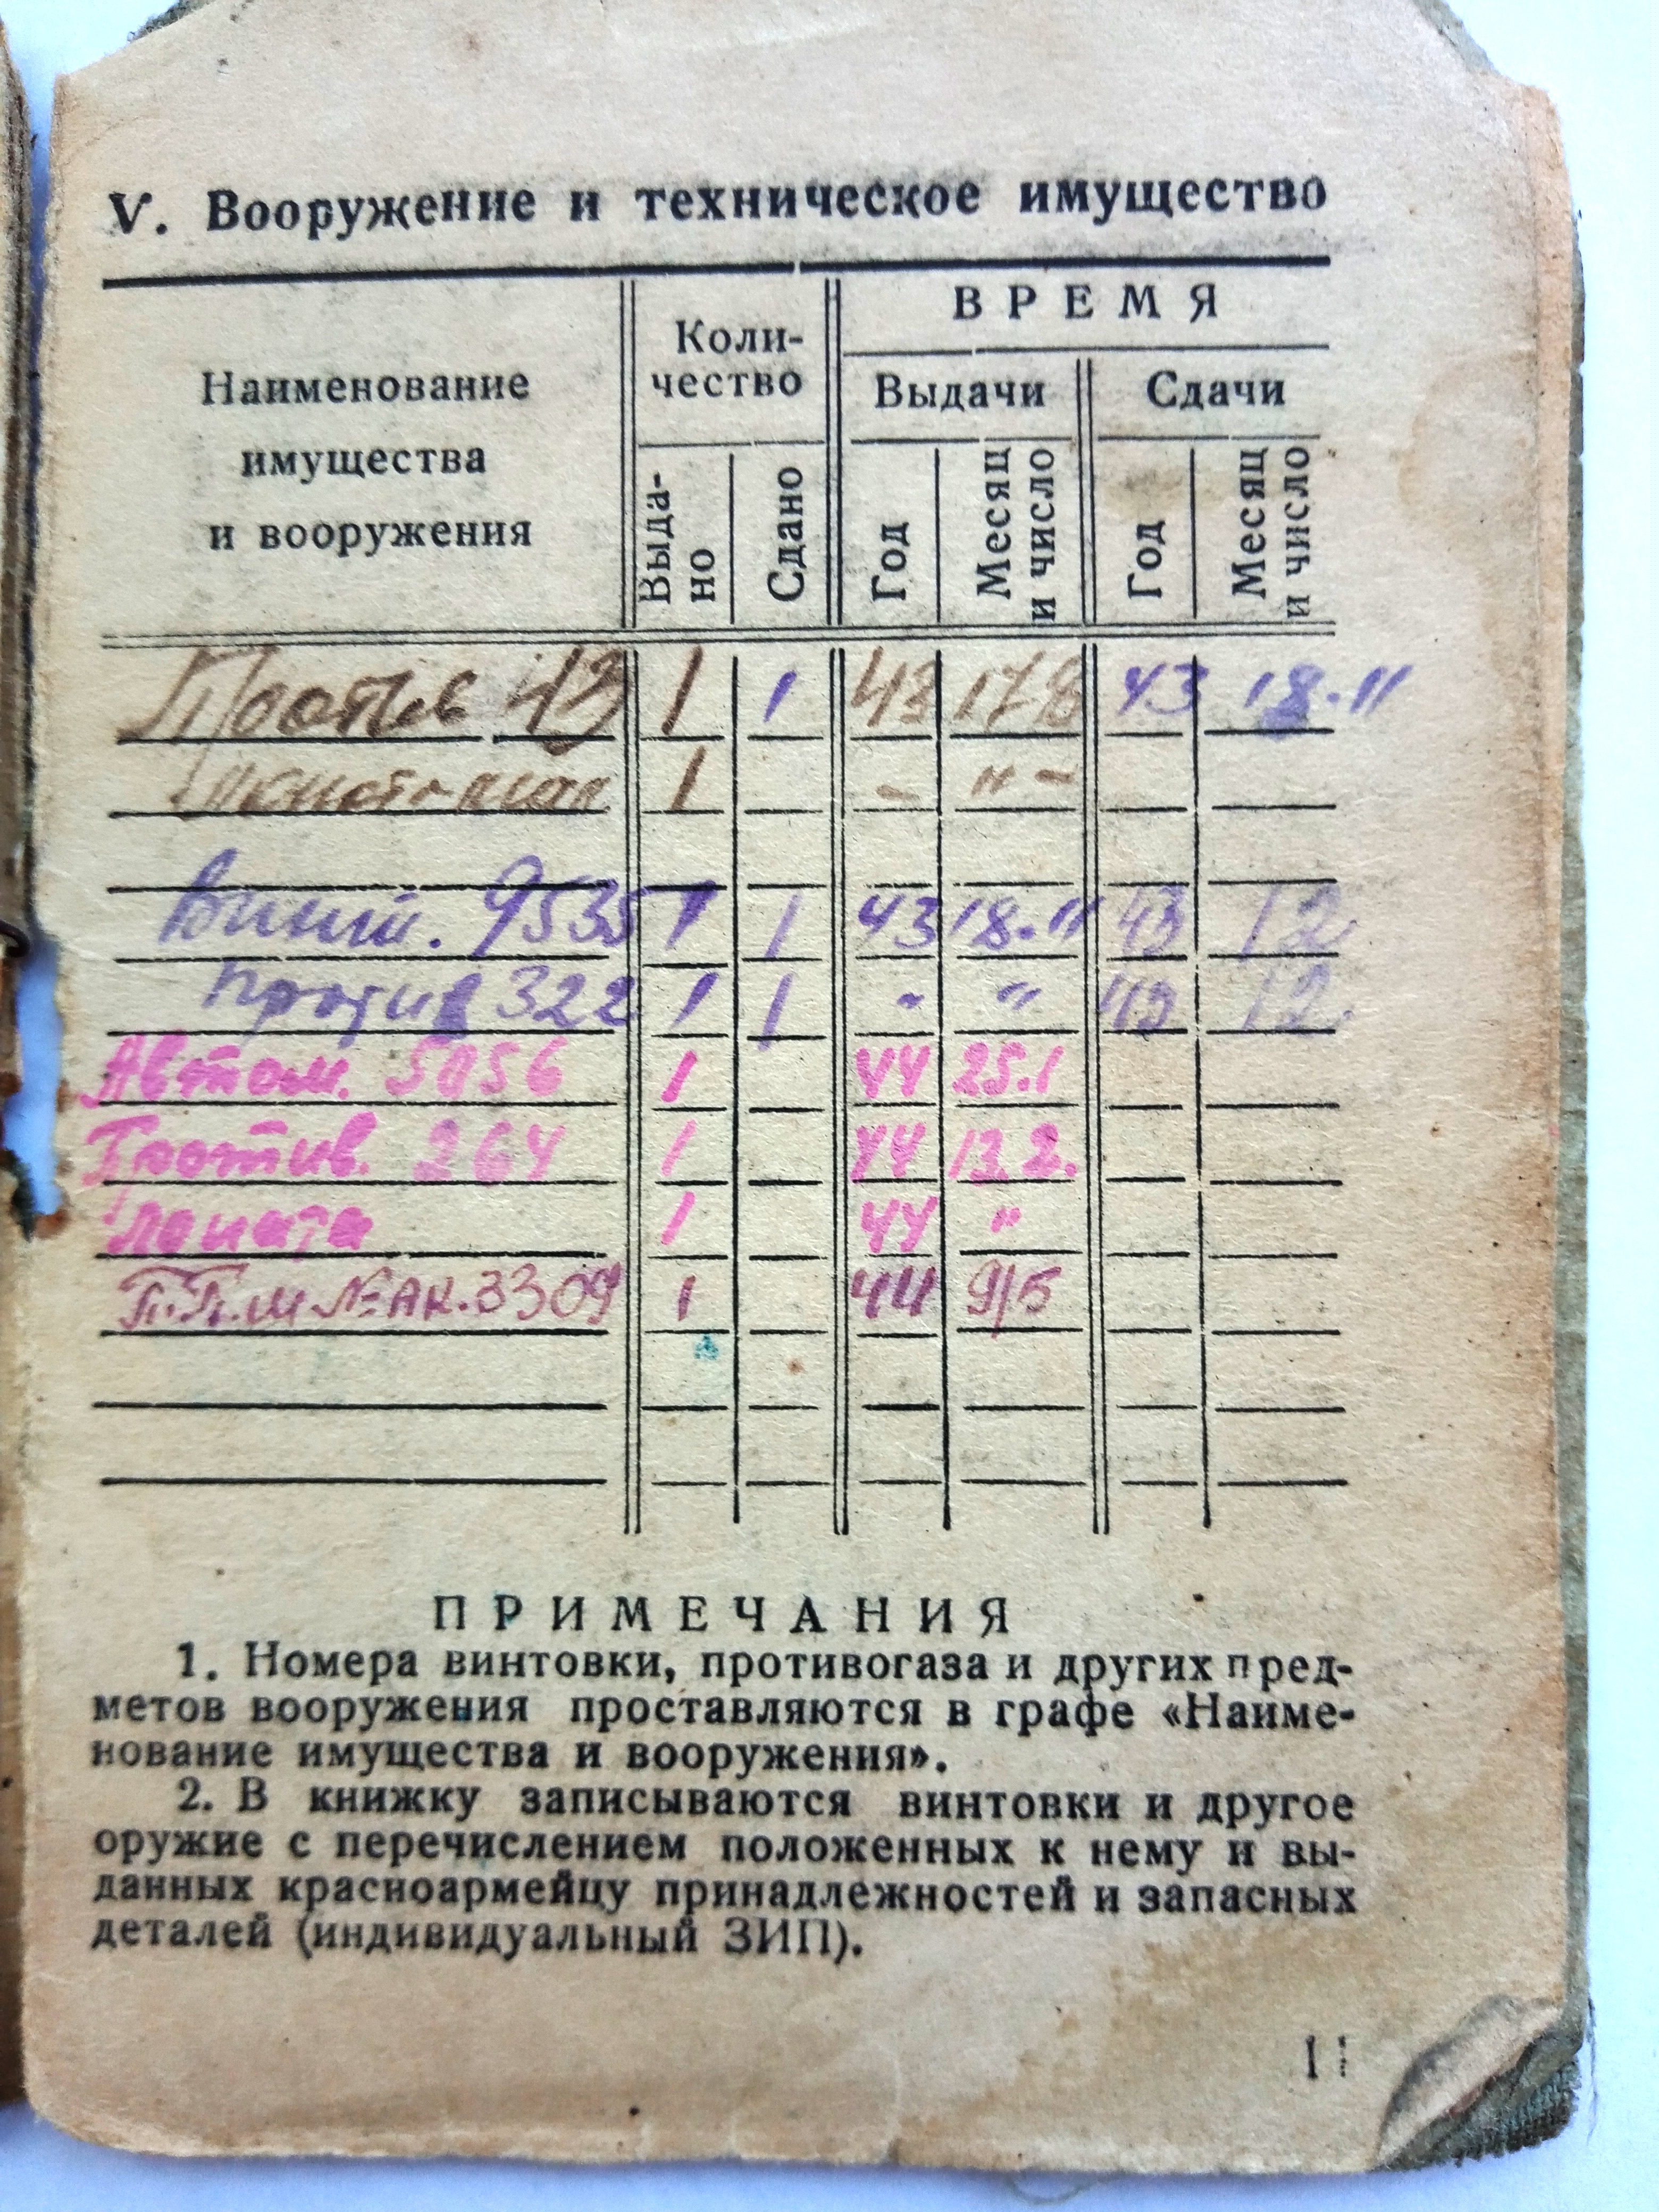 V. Вооружение и техническое имущество
Наименование имущества и вооружения
Коли-
чество
ВРЕМЯ
Выдачи
Сдачи
Выда-
но
Сдано
Год
Месяц
и число
Год
Месяц
и число
Против 13 1 1 43 17 8 43 18.11
1 - " -
Винт. 9535 1 1 43 18.11 43 12
Против 322 1 1 " " 43 12.
Автом. 5056 1 44 25.1
Против. 264 1 44 13.2.
лопата 1 44 "
П.П.Ш №АК.3309 1 44 9/5
ПРИМЕЧАНИЯ
1. Номера винтовки, противогаза и других пред-
метов вооружения проставляются в графе «Наиме-
нование имущества и вооружения».
2. В книжку записываются винтовки и другое
оружие с перечислением положенных к нему и вы-
данных красноармейцу принадлежностей и запасных
деталей (индивидуальный ЗИП).
11